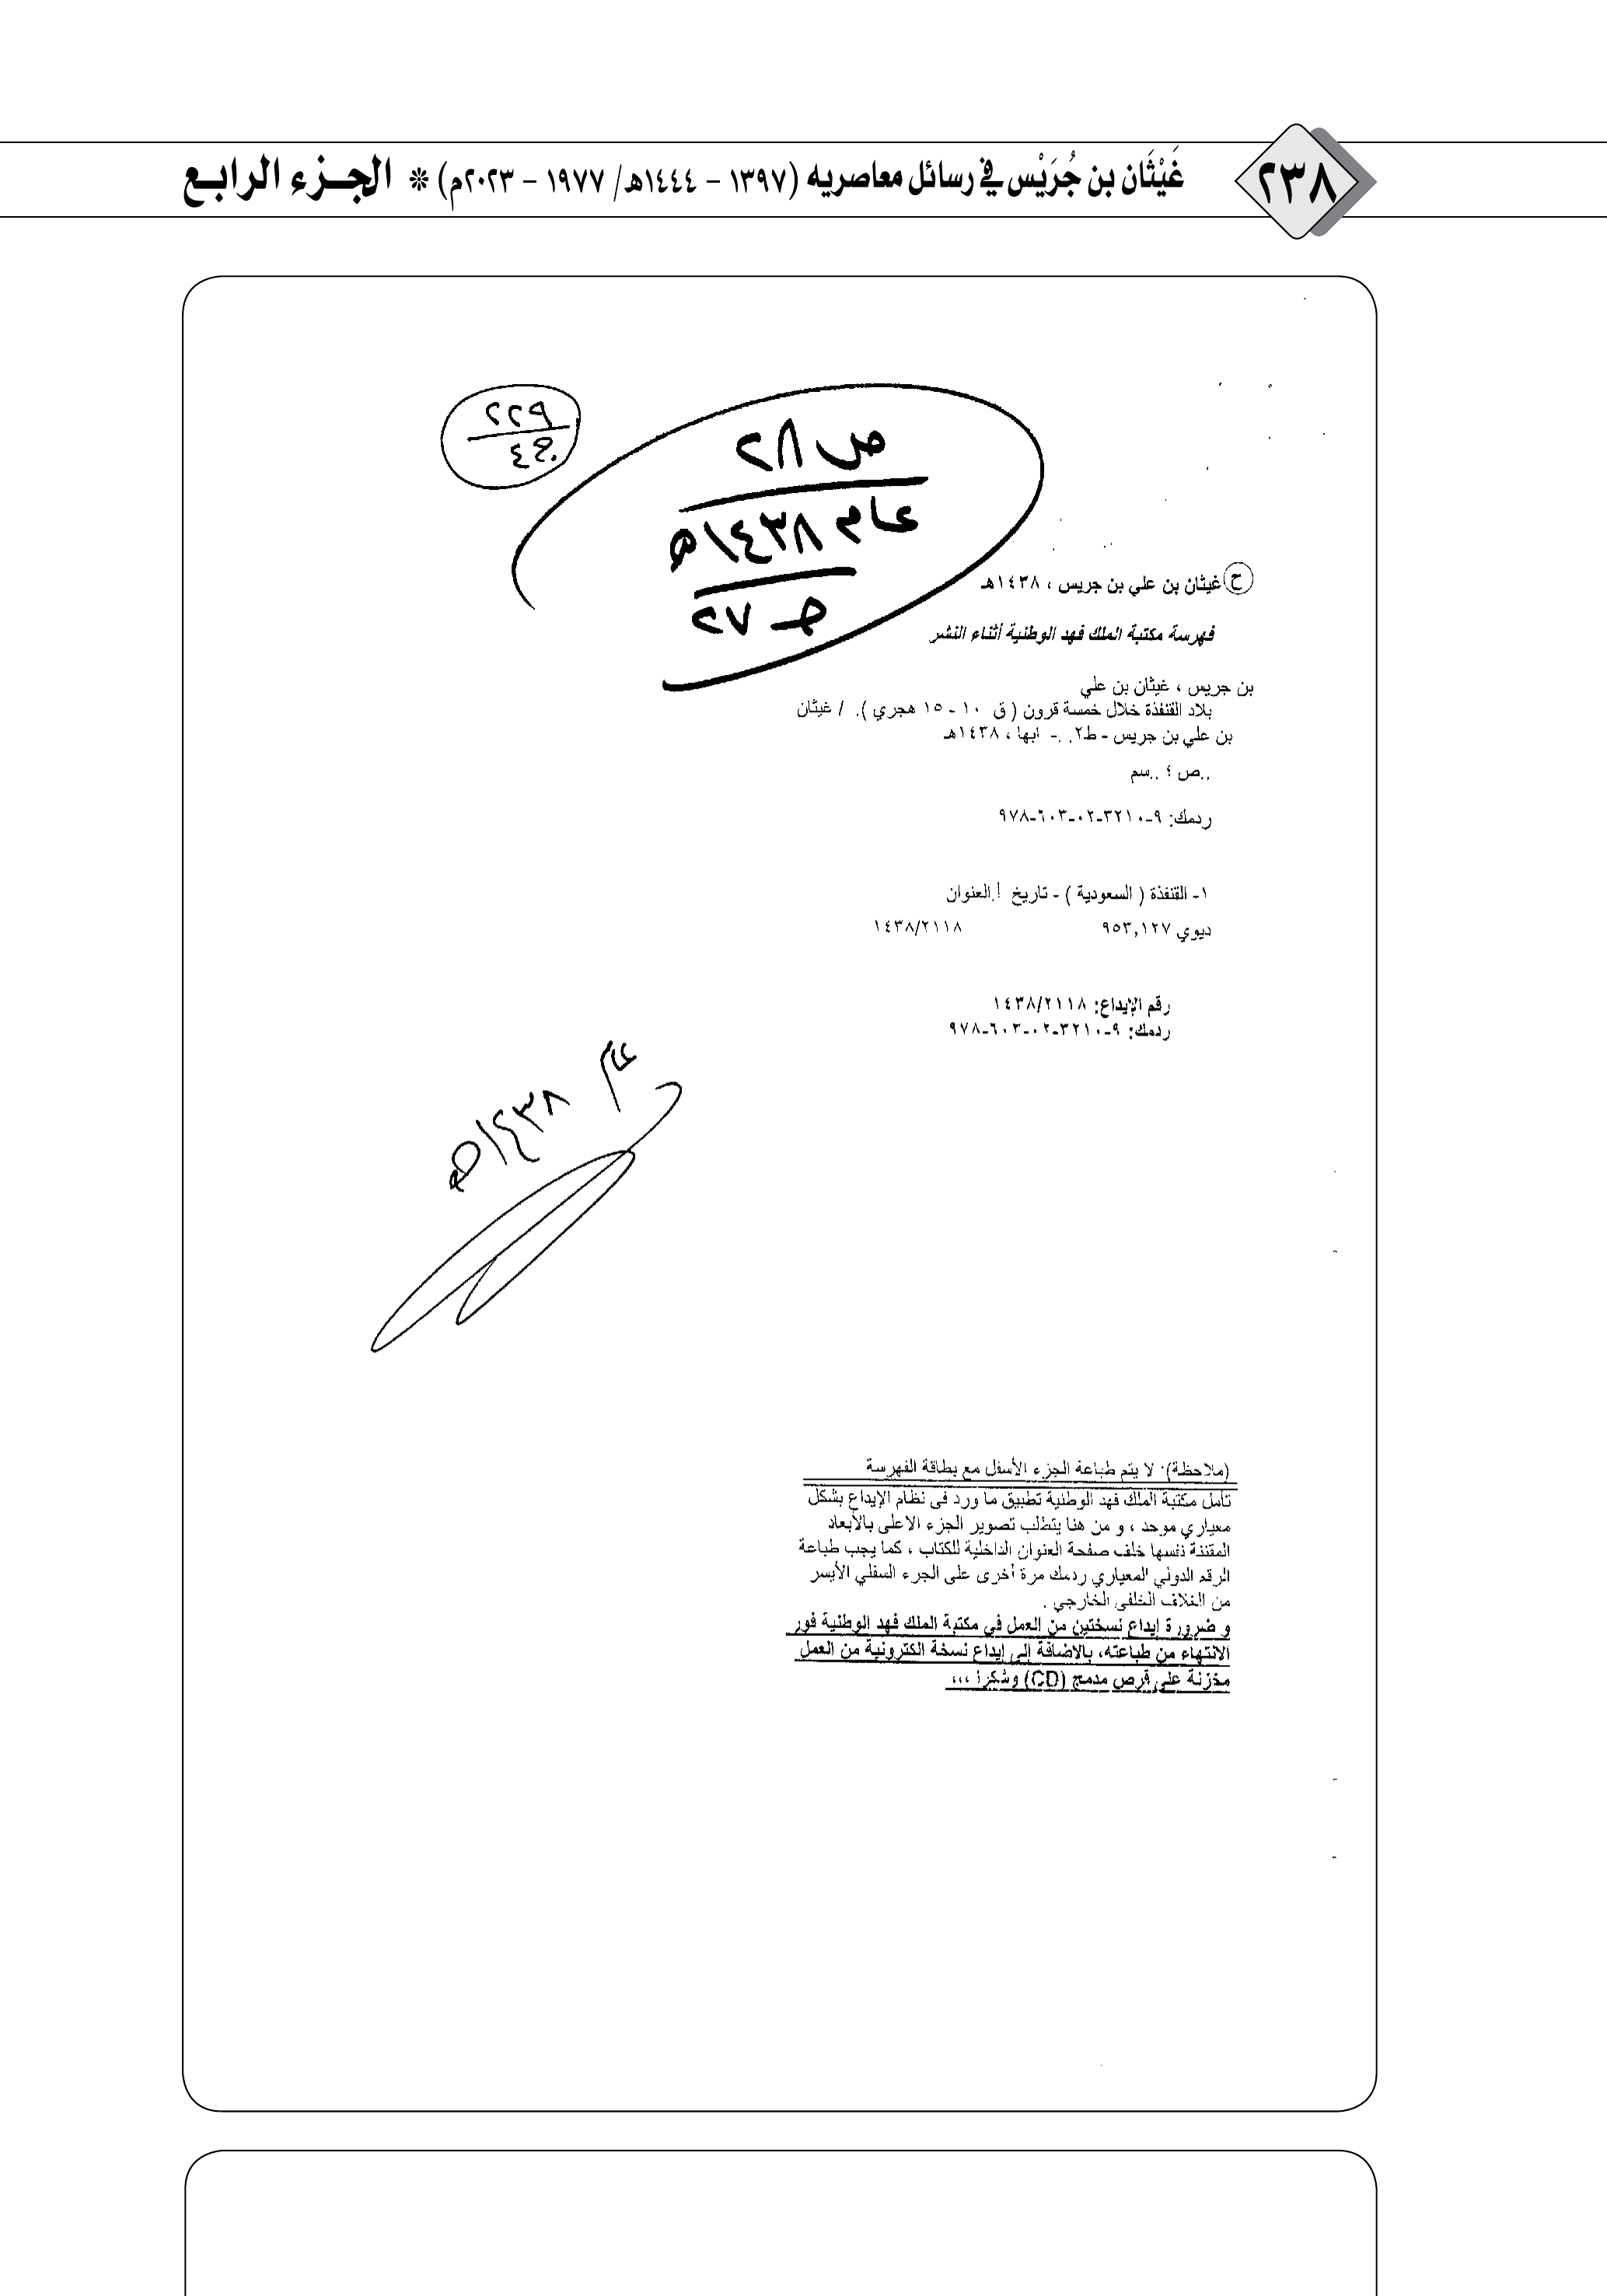 ٢٣٨
غَيْثَان بن جُرَيْس في رسائل معاصريه (١٣٩٧ – ١٤٤٤هـ/ ١٩٧٧ – ٢٠٢٣م) * الجـزء الرابـع
٢٢٩
ج٤
ص ٨٢
عام ١٤٣٨هـ
ح ٧٢
ح غيثان بن علي بن جريس ، ١٤٣٨هـ
فهرسة مكتبة الملك فهد الوطنية أثناء النشر
بن جريس ، غيثان بن علي
بلاد القنفذة خلال خمسة قرون ( ق ١٠ - ١٥ هجري ). / غيثان
بن علي بن جريس - ط٢. .- ابها ، ١٤٣٨هـ
..ص ؛ ..سم
ردمك: ٩-٣٢١٠-٠٢-٦٠٣-٩٧٨
١- القنفذة ( السعودية ) - تاريخ أ.العنوان
ديوي ٩٥٣,١٢٧ ١٤٣٨/٢١١٨
رقم الإيداع: ١٤٣٨/٢١١٨
ردمك: ٩-٣٢١٠-٠٢-٦٠٣-٩٧٨
عام ١٤٣٨هـ
(ملاحظة): لا يتم طباعة الجزء الأسفل مع بطاقة الفهرسة
تأمل مكتبة الملك فهد الوطنية تطبيق ما ورد في نظام الإيداع بشكل
معياري موحد ، و من هنا يتطلب تصوير الجزء الاعلى بالأبعاد
المقننة نفسها خلف صفحة العنوان الداخلية للكتاب ، كما يجب طباعة
الرقم الدولي المعياري ردمك مرة أخرى على الجزء السفلي الأيسر
من الغلاف الخلفي الخارجي .
و ضرورة إيداع نسختين من العمل في مكتبة الملك فهد الوطنية فور
الانتهاء من طباعته، بالاضافة إلى إيداع نسخة الكترونية من العمل
مخزنة على قرص مدمج (CD) وشكرا ،،،